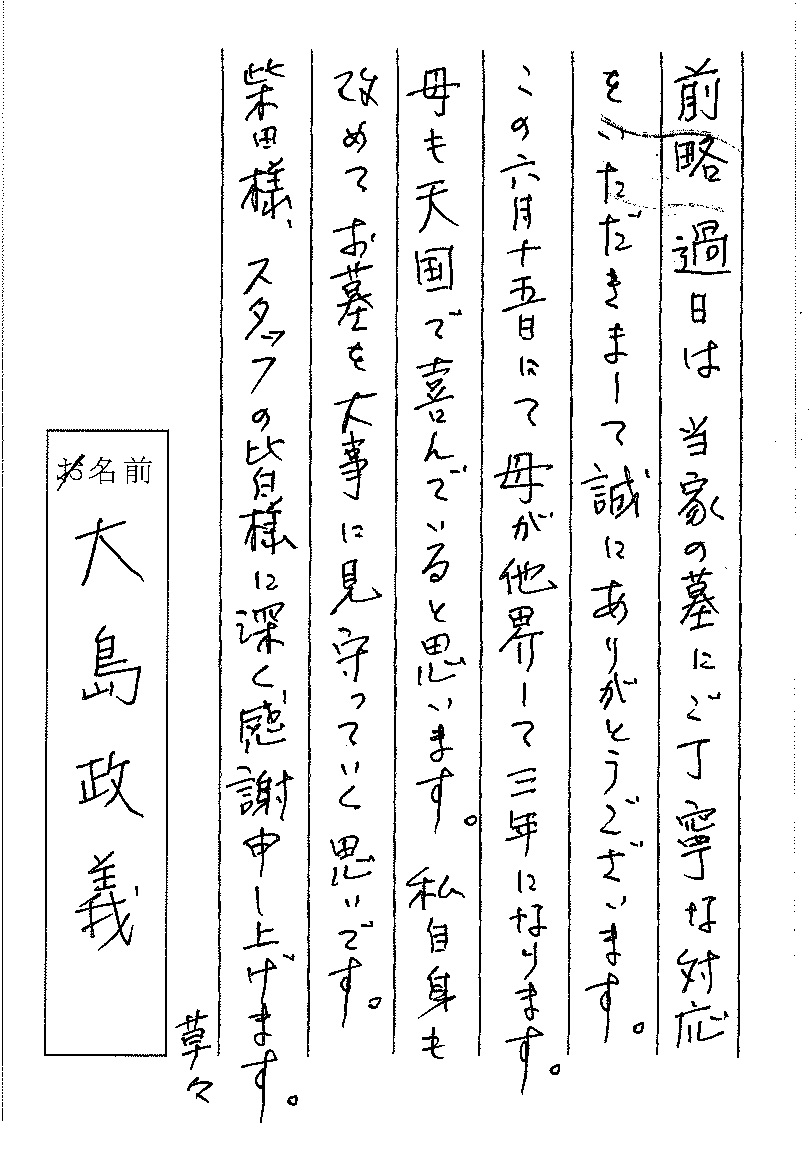 前略 過日は 当家の墓にご丁寧な対応
をいただきまして誠にありがとうございます。
この六月十五日にて母が他界して三年になります。
母も天国で喜んでいると思います。私自身も
改めてお墓を大事に見守っていく思いです。
柴田様、スタッフの皆様に深く感謝申し上げます。
草々
お名前
大島政義